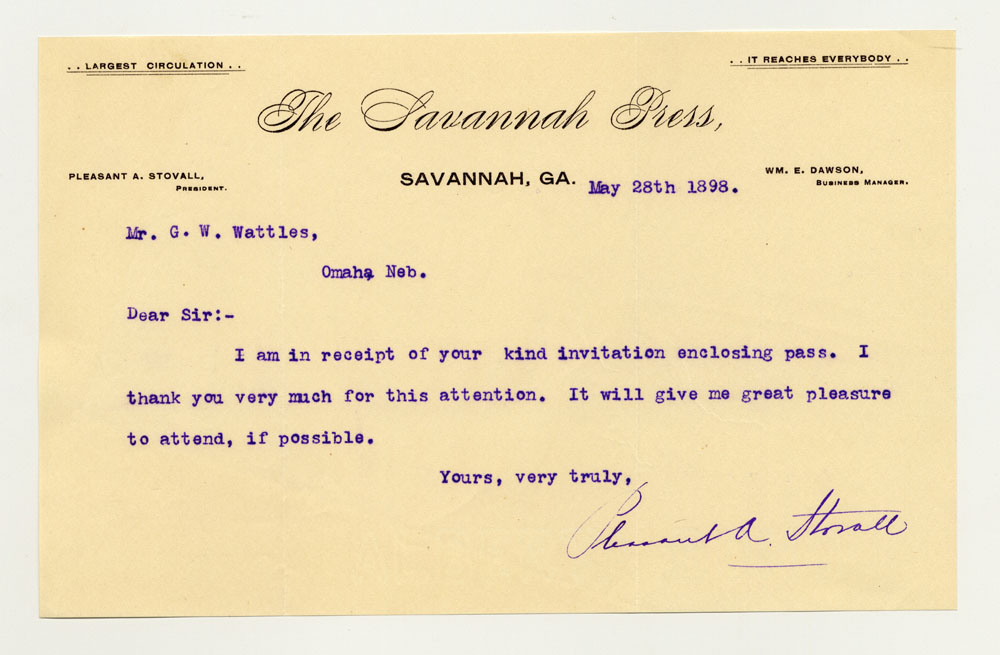 . . LARGEST CIRCULATION . .
. . IT REACHES EVERYBODY . .
The Savannah Press,
PLEASANT A. STOVALL,
PRESIDENT.
SAVANNAH, GA. May 28th 1898.
WM. E. DAWSON,
BUSINESS MANAGER.
Mr. G. W. Wattles,
Omaha, Neb.
Dear Sir:-
I am in receipt of your kind invitation enclosing pass. I
thank you very much for this attention. It will give me great pleasure
to attend, if possible.
Yours, very truly,
Pleasant A. Stovall